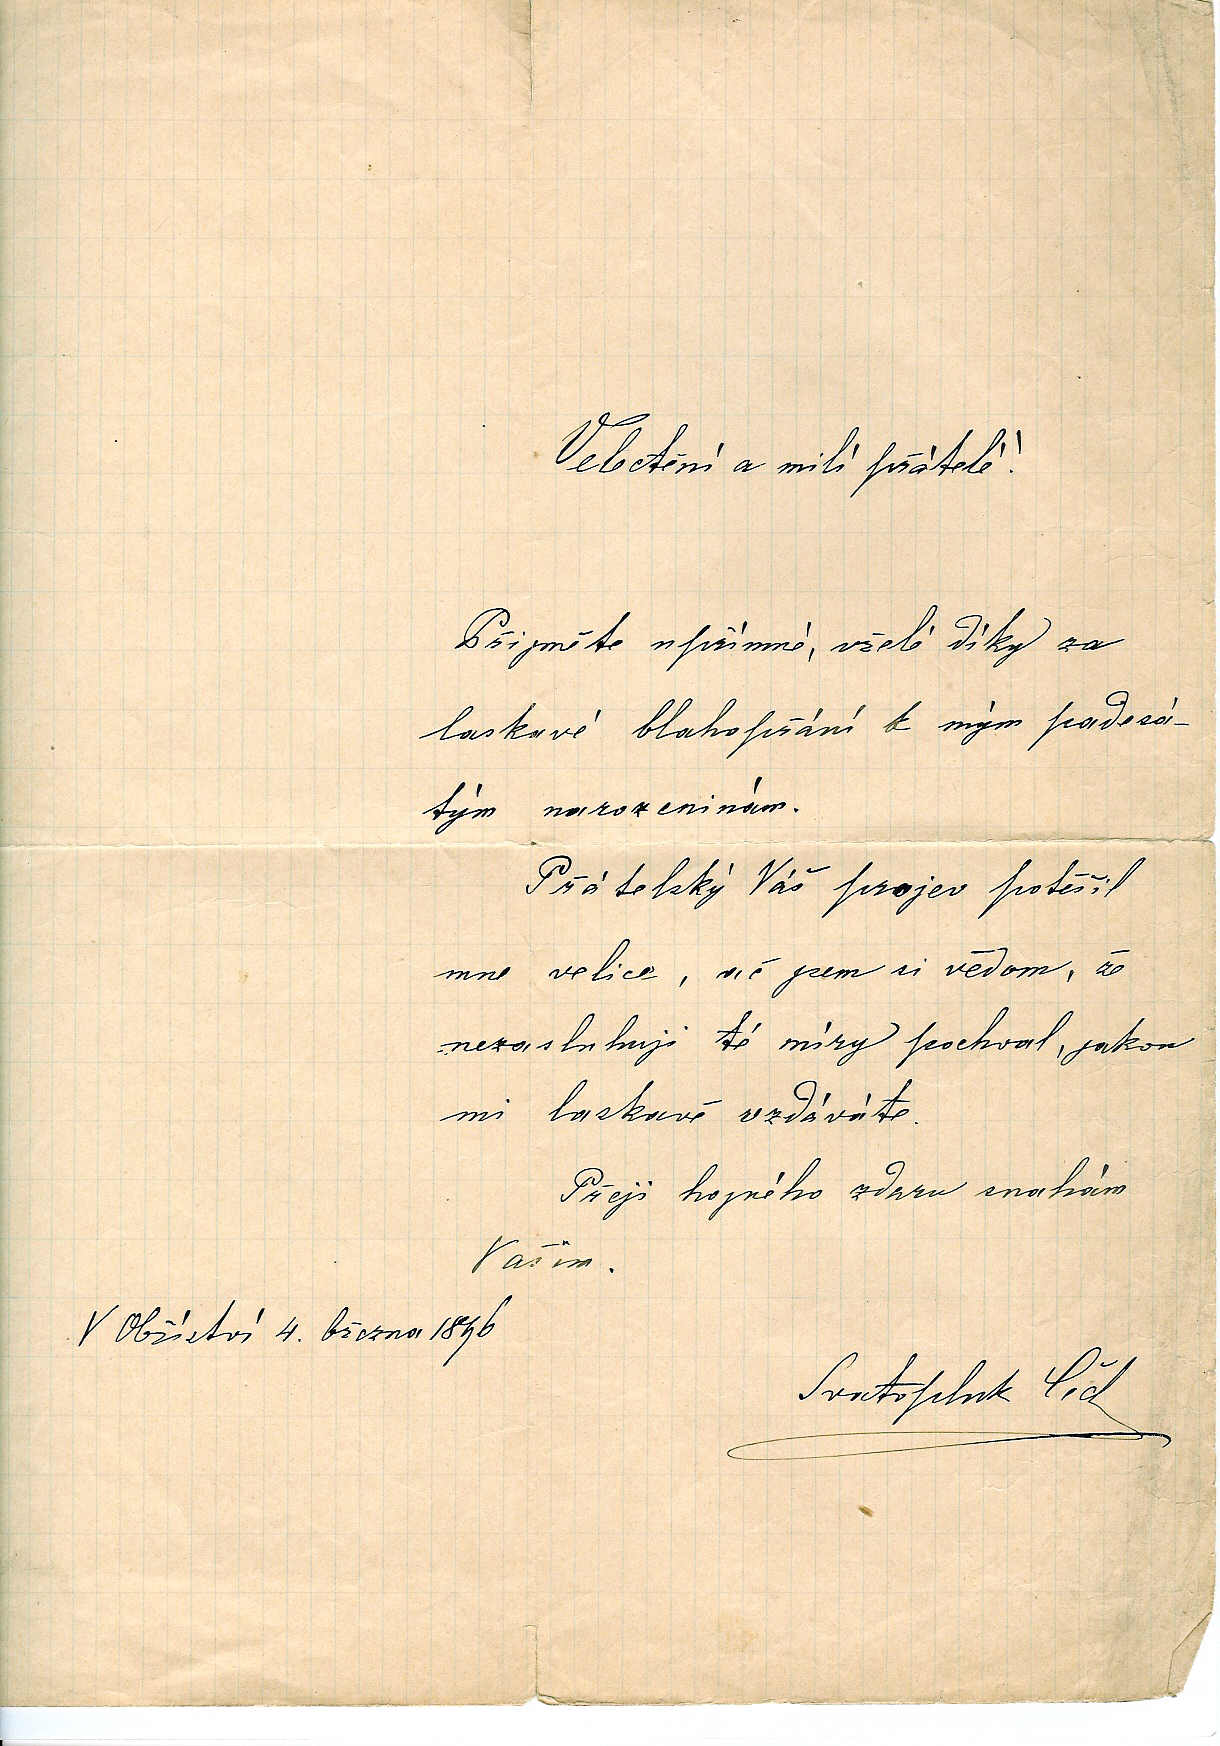 Velectění a milí přátelé!
Přijměte upřímné, vřelé díky za
laskavé blahopřání k mým padesá-
tým narozeninám.
Přátelský Váš projev potěšil
mne velice, ač jsem si vědom, že
nezasluhuji té míry pochval, jakou
mi laskavě vzdáváte.
Přeji hojného zdaru snahám
Vašim.
V Obříství 4. března 1896
Svatopluk Čech